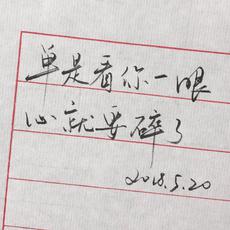 单是看你一眼
心就要碎了
2018.5.20